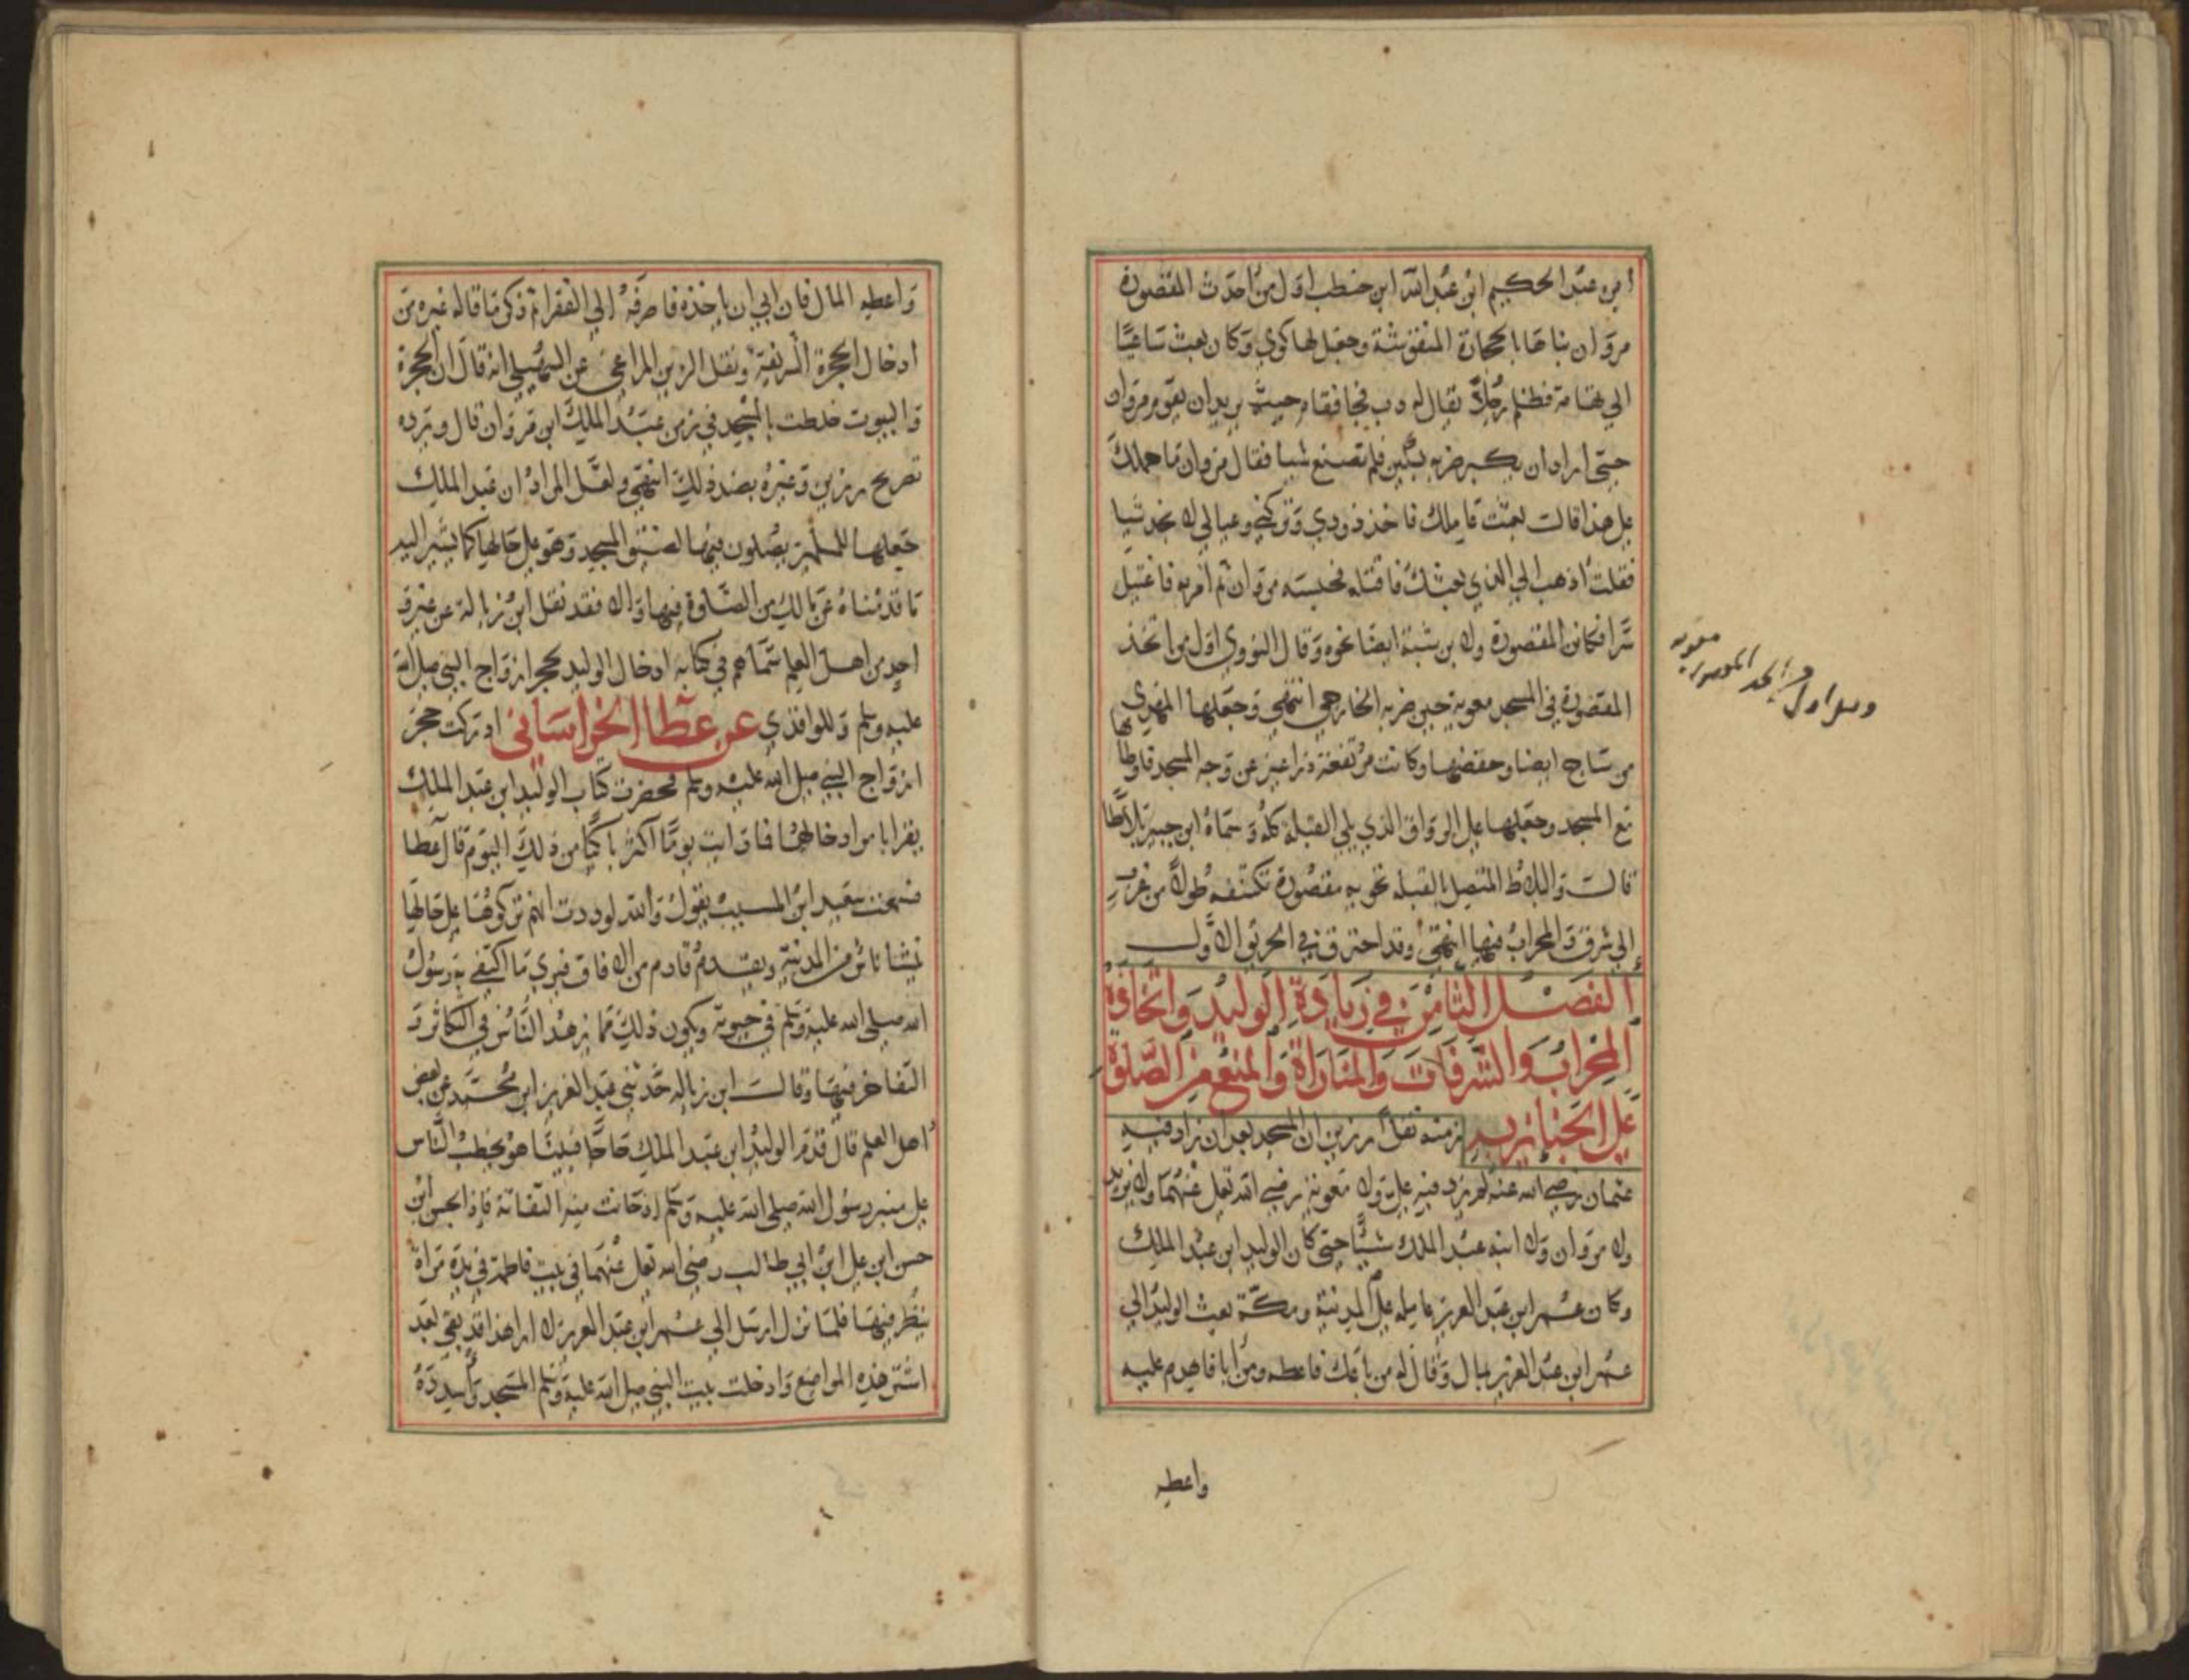 ابن عبد الحكيم ابن عبد الله ابن حنطب اول من احدث المقصورة
مروان بناها بالحجارة المنقوشة وجعل لها كوي وكان بعث ساعيا
الي تهامة فظلم رجلا يقال له دب فجا فقام حيث يريد ان يقوم مروان
حتي اراد ان يكبر ضربه بسكين فلم تصنع شيا فقال مروان ما حملك
علي هذا قال بعثت عاملك فاخذ ذودي وتركني وعيالي لا نجد شيا
فقلت اذهب الي الذي بعثك فاقتله فحبسه مروان ثم امر به فاغتيل
سرا فكانت المقصورة ولابن شبة ايضا نحوه وقال النووي اول من اتخذ
المقصورة في المسجد معوية حين ضربه الخارجي انتهي وجعلها المهدي
من ساج ايضا وخفضها وكانت مرتفعة ذراعين عن وجه المسجد فاوطاها
مع المسجد وجعلها علي الرواق الذي يلي القبلة كله وسماه ابن جبير بلاطا
قال والبلاط المتصل بالقبله تحويه مقصورة تكتنفه طولا من غرب
إلي شرق والمحراب فيها انتهي وقد احترق في الحريق الاول
الفصل الثامن في زيادة الوليد واتخاذه
المحراب والشرفات والمنارات والمنع من الصلوة
علي الجنايز به زمنه نقل رزين ان المسجد بعد ان زاد فيه
عثمان رضي الله عنه لم يزد فيه علي ولا معوية رضي الله تعلي عنهما ولا يزيد
ولا مروان ولا ابنه عبد الملك شيا حتي كان الوليد ابن عبد الملك
وكان عمر ابن عبد العزيز عامله علي المدينة ومكة بعث الوليد الي
عمر ابن عبد العزيز بمال وقال له من باعك فاعطه ومن ابا فاهدم عليه
واعطه
معويه
المقصوره
واعطه المال فان ابي ان ياخذه فاصرفه الي الفقرا ثم ذكر ما قاله غيره من
ادخال الحجرة الشريفة ونقل الزين المراغي عن السهيلي انه قال ان الحجرة
والبيوت خلطت بالمسجد في زمن عبد الملك ابن مروان قال ويرده
تصريح رزين وغيره بضد ذلك انتهي ولعل المراد ان عبد الملك
جعلها للمسلمين يصلون فيها لضيق المسجد وهو علي حالها كما يشير اليه
ما قدمناه عن مالك من الصلوة فيها والا فقد نقل ابن زبالة عن غير
احد من اهل العلم سماهم في كتابه ادخال الوليد لحجر ازواج النبي صلي الله
عليه وسلم وللواقدي عن عطا الخراساني ادركت حجر
ازواج النبي صلي الله عليه وسلم فحضرت كتاب الوليد ابن عبد الملك
يقرا بامر ادخالها فما رايت يوما اكثر باكيا من ذلك اليوم قال عطا
فسمعت سعيد ابن المسيب يقول والله لوددت انهم تركوها علي حالها
ينشا ناش من المدينة ويقدم قادم من الافاق فيري ما اكتفي به رسول
الله صلي الله عليه وسلم في حيوته ويكون ذلك مما يزهد الناس في التكاثر و
التفاخر فيها وقال ابن زباله حدثني عبد العزيز ابن محمد عن بعض
اهل العلم قال قدم الوليد ابن عبد الملك حاجا فبينا هو يخطب الناس
علي منبر رسول الله صلي الله عليه وسلم اذ حانت منه التفاتة فاذا بحسن ابن
حسن ابن علي ابن ابي طالب رضي الله تعلي عنهما في بيت فاطمة في يده مراة
ينظر فيها فلما نزل ارسل الي عمر ابن عبد العزيز لا اري هذا قد بقي بعد
اشتر هذه المواضع وادخلت بيت النبي صلي الله عليه وسلم المسجد واسدده